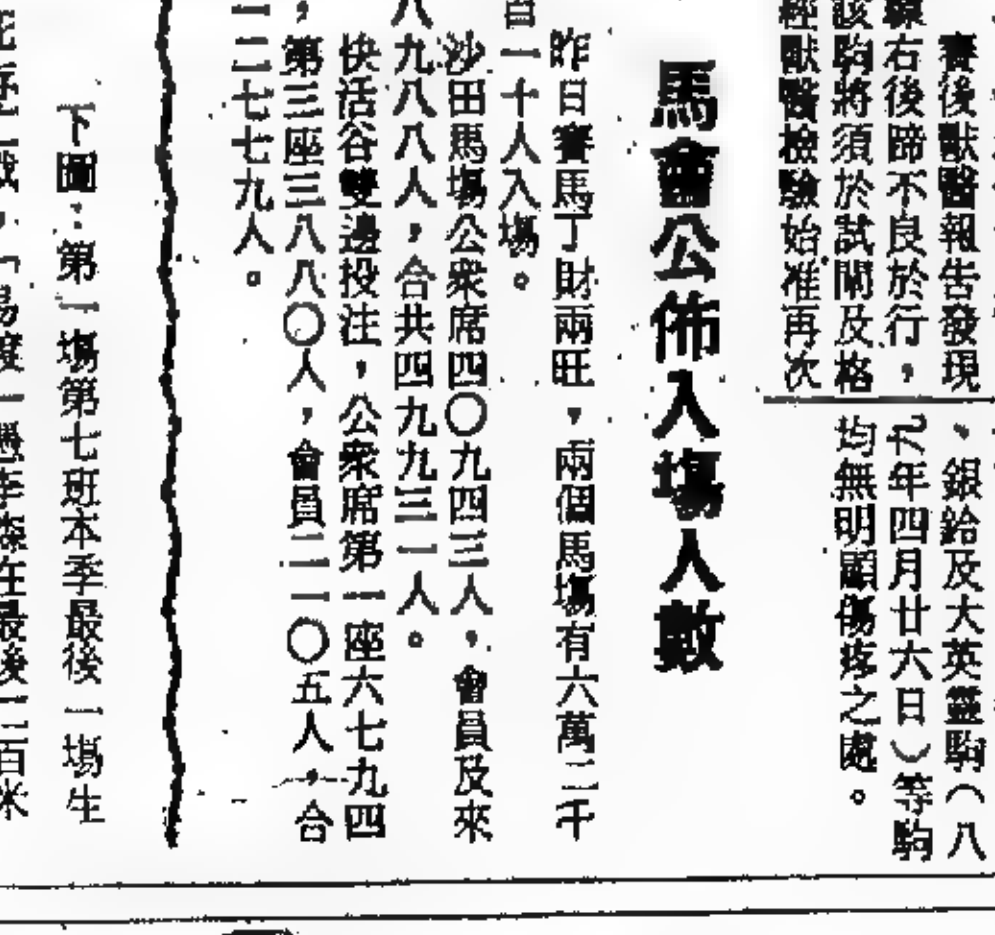 賽後獸醫報告發現
右後蹄不良於行，
該駒將須於試閘及格
經獸醫檢驗始准再次
，銀給及大英靈駒（八
九年四月廿六日）等駒
均無明顯傷疼之處。
馬會公佈入場人數
昨日賽馬丁財兩旺，兩個馬場有六萬二千
百一十人入場。
沙田馬場公衆席四〇九四三人，會員及來
八九八八人，合共四九九三一人。
快活谷雙邊投注，公衆席第一座六七九四
，第三座三八八〇人，會員二一〇五人，合
一二七七九人。
下圖：第一場第七班本季最後一場生
在最後二百米